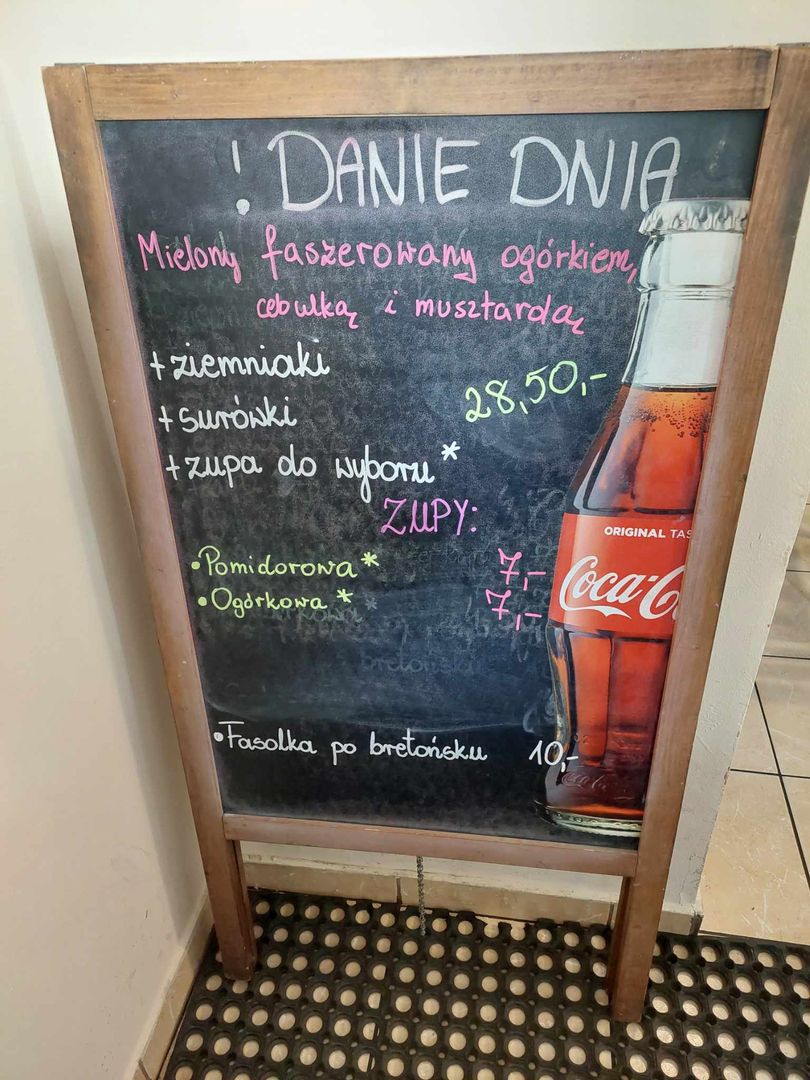 ! DANIE DNIA
Mielony faszerowany ogórkiem,
cebulką i musztardą
+ ziemniaki
28,50,-
+ surówki
+ zupa do wyboru*
ZUPY:
• Pomidorowa* 7,-
• Ogórkowa* 7,-
ORIGINAL TAS
Coca-C
• Fasolka po bretońsku 10,-